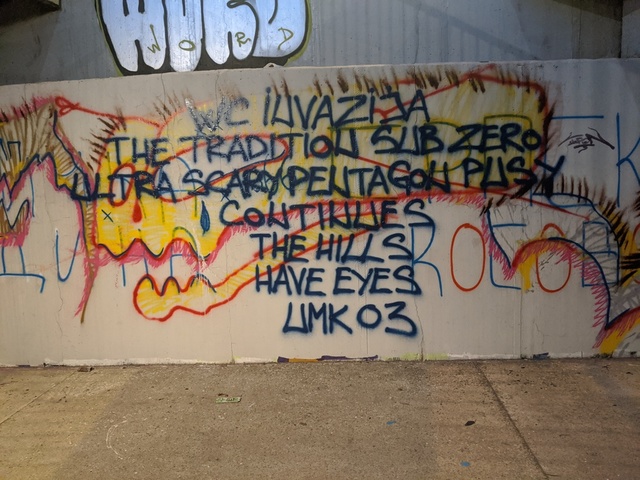 WORD
WC INVAZIJA
THE TRADITION SUB ZERO
ULTRA SCARY PENTAGON PUSY
CONTINUES
THE HILLS
HAVE EYES
UMK 03